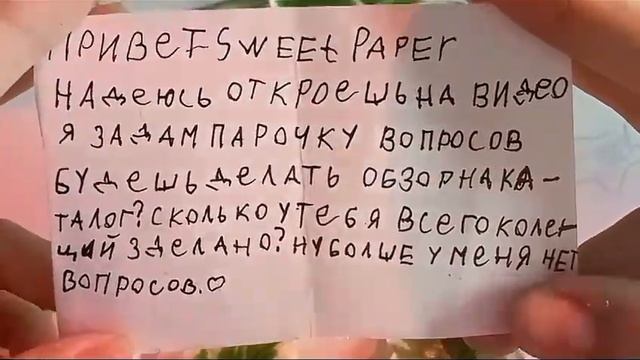 ПРИВЕТ SWEET PAPER
НАДЕЮСЬ ОТКРОЕШЬ НА ВИДЕО
Я ЗАДАМ ПАРОЧКУ ВОПРОСОВ
БУДЕШЬ ДЕЛАТЬ ОБЗОР НА КА-
ТАЛОГ? СКОЛЬКО У ТЕБЯ ВСЕГО КОЛЕК-
ЦИЙ ЗДЕЛАНО? НУ БОЛШЕ У МЕНЯ НЕТ
ВОПРОСОВ.♡